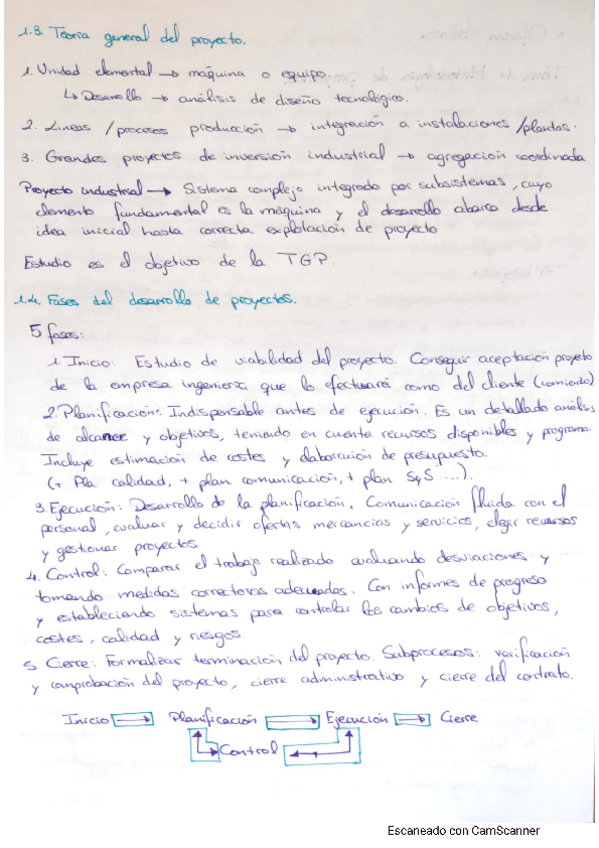 1.3. Teoría general del proyecto.
1. Unidad elemental → máquina o equipo.
↳ Desarrollo → análisis de diseño tecnológico.
2. Líneas / procesos producción → integración a instalaciones / plantas.
3. Grandes proyectos de inversión industrial → agregación coordinada
Proyecto industrial → Sistema complejo integrado por subsistemas, cuyo
elemento fundamental es la máquina y el desarrollo abarca desde
idea inicial hasta correcta explotación de proyecto
Estudio es el objetivo de la TGP.
1.4. Fases del desarrollo de proyectos.
5 fases:
1. Inicio: Estudio de viabilidad del proyecto. Conseguir aceptación proyecto
de la empresa ingeniería que lo efectuará como del cliente
2. Planificación: Indispensable antes de ejecución. Es un detallado análisis
de alcance y objetivos, teniendo en cuenta recursos disponibles y programa.
Incluye estimación de costes y elaboración de presupuesto.
(+ Pla calidad, + plan comunicación, + plan SyS ....).
3. Ejecución: Desarrollo de la planificación. Comunicación fluida con el
personal, evaluar y decidir ofertas mercancías y servicios, elegir recursos
y gestionar proyectos.
4. Control: Comparar el trabajo realizado evaluando desviaciones y
tomando medidas correctoras adecuadas. Con informes de progreso
y estableciendo sistemas para controlar los cambios de objetivos,
costes, calidad y riesgos.
5. Cierre: Formalizar terminación del proyecto. Subprocesos: verificación
y comprobación del proyecto, cierre administrativo y cierre del contrato.
Inicio → Planificación → Ejecución → Cierre
Control
Escaneado con CamScanner